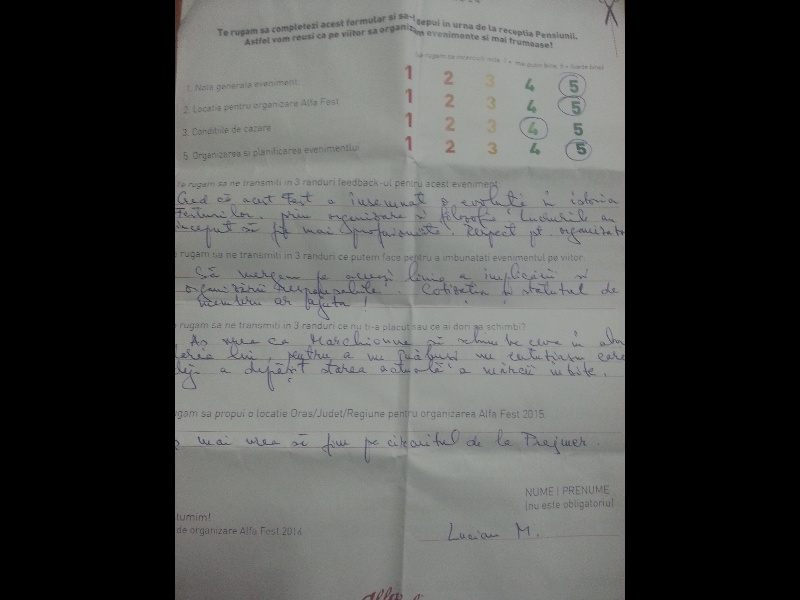 Te rugam sa completezi acest formular si sa-l depui in urna de la receptia Pensiunii.
Astfel vom reusi ca pe viitor sa organizam evenimente si mai frumoase!
1. Nota generala eveniment: 1 2 3 4 5
2. Locatia pentru organizare Alfa Fest 1 2 3 4 5
3. Conditiile de cazare 1 2 3 4 5
5. Organizarea si planificarea evenimentului 1 2 3 4 5
Te rugam sa ne transmiti in 3 randuri feedback-ul pentru acest eveniment
Cred că acest Fest a însemnat o evoluție în istoria
Festurilor, prin organizare și filozofie. Lucrurile au
început să fie mai profesioniste. Respect pt. organizatori
rugam sa ne transmiti in 3 randuri ce putem face pentru a imbunatati evenimentul pe viitor.
Să mergem pe aceeași linie a implicării și
organizării responsabile. Cotizația și statutul de
membru ar ajuta!
rugam sa ne transmiti in 3 randuri ce nu ti-a placut sau ce ai dori sa schimbi?
Aș vrea ca Marchionne să schimbe ceva în
lui, pentru a nu un entuziasm care
a depășit starea actuală a mărcii iubite.
rugam sa propui o locatie Oras/Judet/Regiune pentru organizarea Alfa Fest 2015
mai vrea să fim pe circuitul de la Prejmer.
NUME | PRENUME
(nu este obligatoriu)
Lucian M.
de organizare Alfa Fest 2014